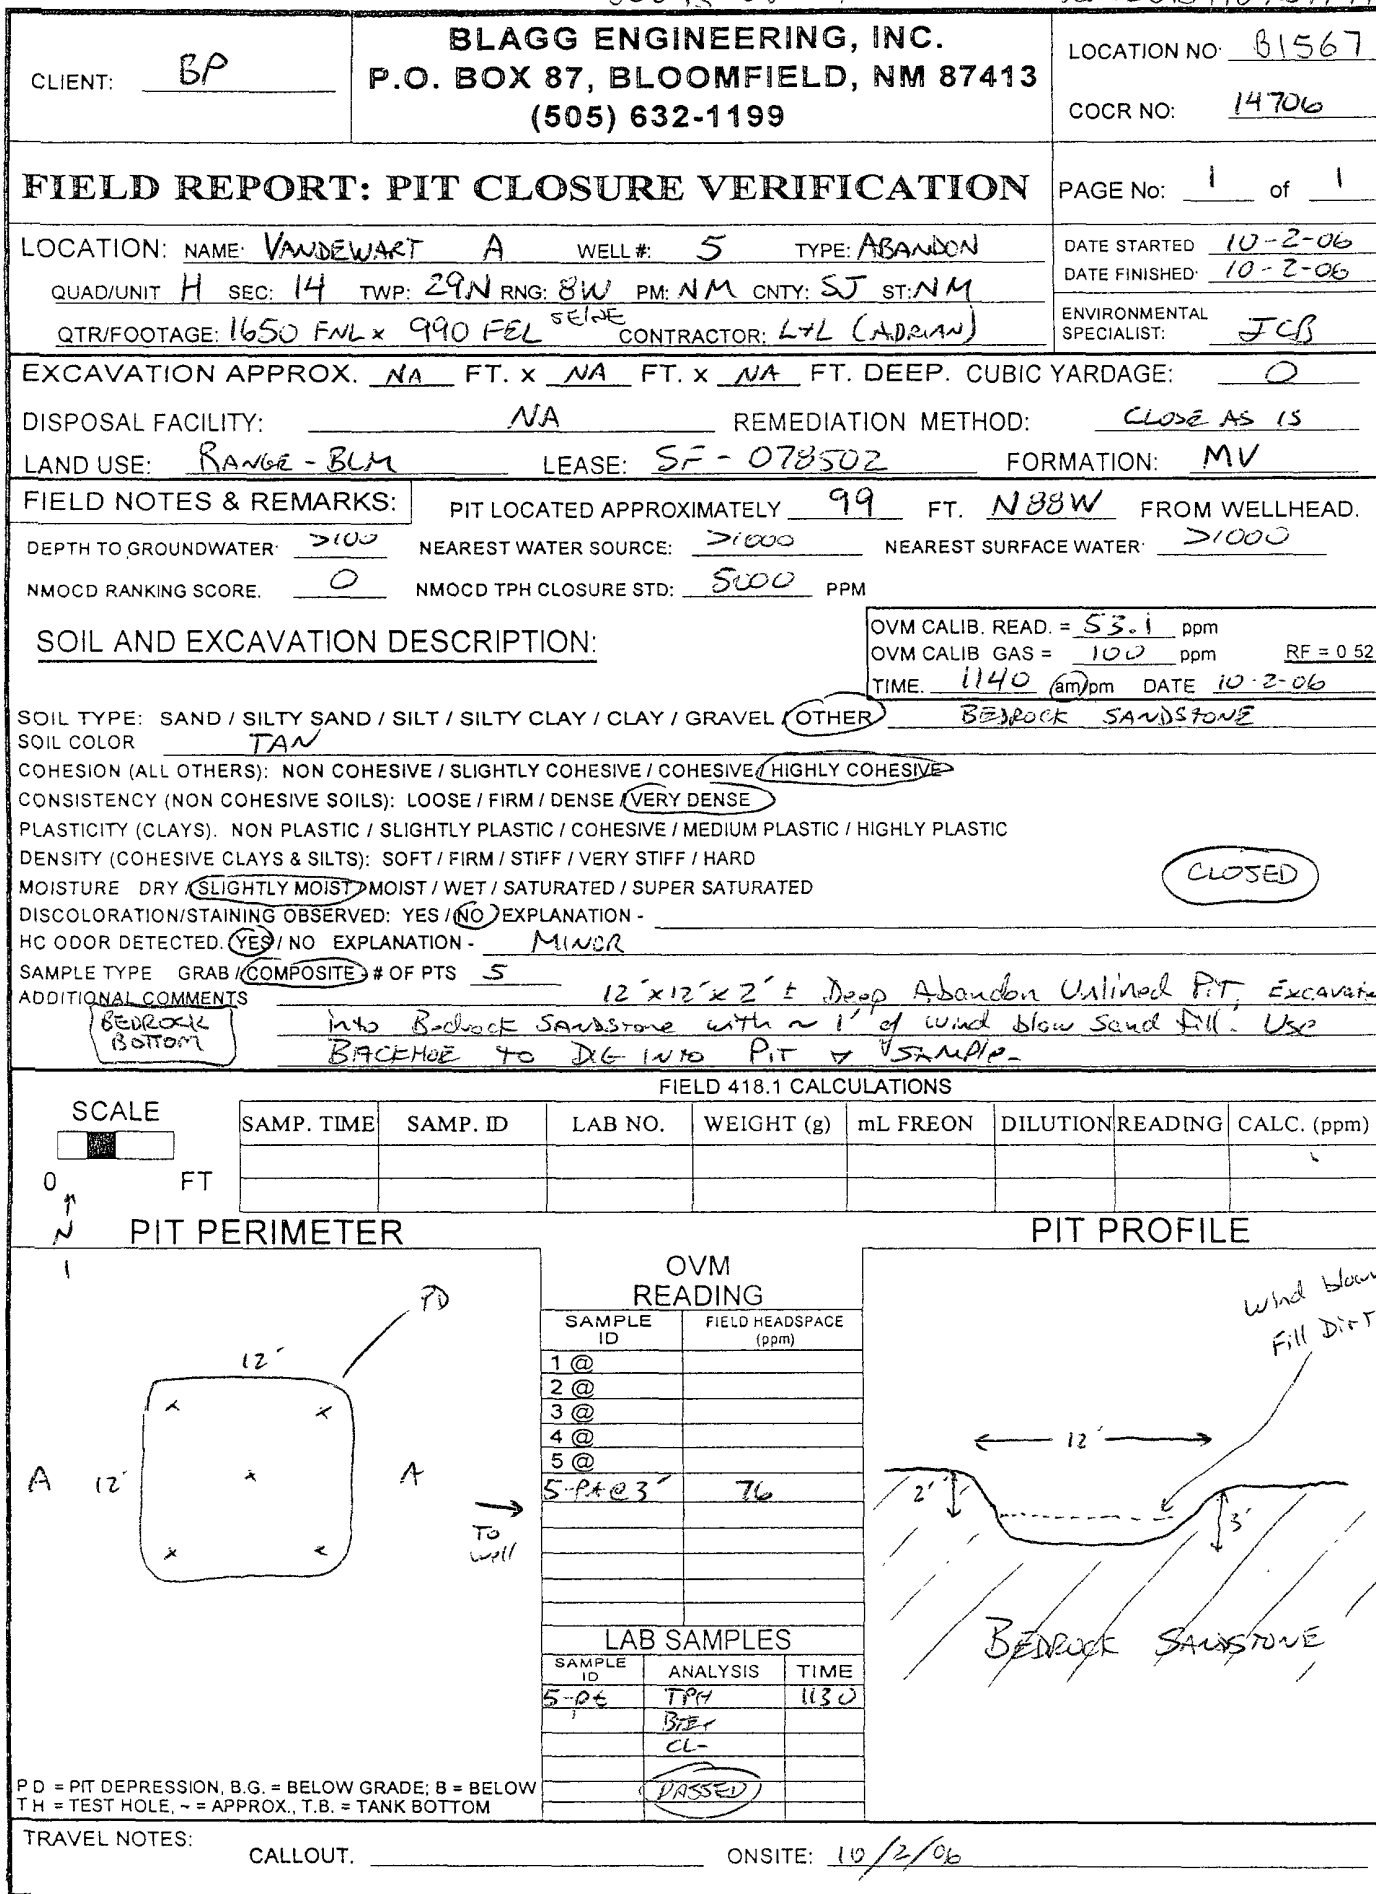 BLAGG ENGINEERING, INC.
CLIENT: BP
P.O. BOX 87, BLOOMFIELD, NM 87413
(505) 632-1199
LOCATION NO: B1567
COCR NO: 14706
FIELD REPORT: PIT CLOSURE VERIFICATION
PAGE No: 1 of 1
LOCATION: NAME: VANDEWART A WELL #: 5 TYPE: ABANDON
QUAD/UNIT H SEC: 14 TWP: 29N RNG: 8W PM: NM CNTY: SJ ST: NM
QTR/FOOTAGE: 1650 FNL x 990 FEL SE/NE CONTRACTOR: L+L (ADRIAN)
DATE STARTED 10-2-06
DATE FINISHED: 10-2-06
ENVIRONMENTAL
SPECIALIST: JCB
EXCAVATION APPROX. NA FT. x NA FT. x NA FT. DEEP. CUBIC YARDAGE: 0
DISPOSAL FACILITY: NA REMEDIATION METHOD: CLOSE AS IS
LAND USE: RANGE - BLM LEASE: SF - 078502 FORMATION: MV
FIELD NOTES & REMARKS: PIT LOCATED APPROXIMATELY 99 FT. N88W FROM WELLHEAD.
DEPTH TO GROUNDWATER: >100 NEAREST WATER SOURCE: >1000 NEAREST SURFACE WATER: >1000
NMOCD RANKING SCORE. 0 NMOCD TPH CLOSURE STD: 5000 PPM
SOIL AND EXCAVATION DESCRIPTION:
OVM CALIB. READ. = 53.1 ppm
OVM CALIB GAS = 100 ppm RF = 0 52
TIME. 1140 am/pm DATE 10-2-06
SOIL TYPE: SAND / SILTY SAND / SILT / SILTY CLAY / CLAY / GRAVEL / OTHER BEDROCK SANDSTONE
SOIL COLOR TAN
COHESION (ALL OTHERS): NON COHESIVE / SLIGHTLY COHESIVE / COHESIVE / HIGHLY COHESIVE
CONSISTENCY (NON COHESIVE SOILS): LOOSE / FIRM / DENSE / VERY DENSE
PLASTICITY (CLAYS). NON PLASTIC / SLIGHTLY PLASTIC / COHESIVE / MEDIUM PLASTIC / HIGHLY PLASTIC
DENSITY (COHESIVE CLAYS & SILTS): SOFT / FIRM / STIFF / VERY STIFF / HARD
MOISTURE DRY / SLIGHTLY MOIST / MOIST / WET / SATURATED / SUPER SATURATED
CLOSED
DISCOLORATION/STAINING OBSERVED: YES / NO EXPLANATION -
HC ODOR DETECTED. YES / NO EXPLANATION - MINOR
SAMPLE TYPE GRAB / COMPOSITE # OF PTS 5
ADDITIONAL COMMENTS 12'x12'x2' ± Deep Abandon Unlined PIT, Excavate
BEDROCK
BOTTOM
into Bedrock SANDSTONE with ~ 1' of wind blow Sand fill. Use
BACKHOE to DIG INTO PIT & SAMPLE-
FIELD 418.1 CALCULATIONS
SCALE
0 FT
SAMP. TIME SAMP. ID LAB NO. WEIGHT (g) mL FREON DILUTION READING CALC. (ppm)
N
PIT PERIMETER
PIT PROFILE
PD
12'
A 12' A
To
well
OVM
READING
SAMPLE
ID
FIELD HEADSPACE
(ppm)
1 @
2 @
3 @
4 @
5 @
5-Pt @ 3' 76
LAB SAMPLES
SAMPLE
ID ANALYSIS TIME
5-pt TPH 1130
CL-
PASSED
wind blown
Fill Dirt
12'
2'
3'
BEDROCK SANDSTONE
P D = PIT DEPRESSION, B.G. = BELOW GRADE; B = BELOW
T H = TEST HOLE, ~ = APPROX., T.B. = TANK BOTTOM
TRAVEL NOTES:
CALLOUT. ONSITE: 10/2/06